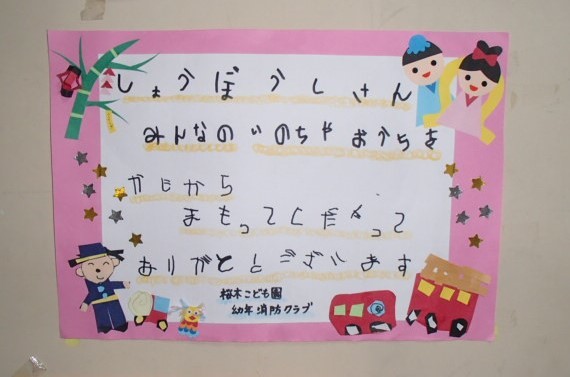 しょうぼうしさん
みんなのいのちやおうちを
かじから
まもってくださって
ありがとうございます
桜木こども園
幼年消防クラブ